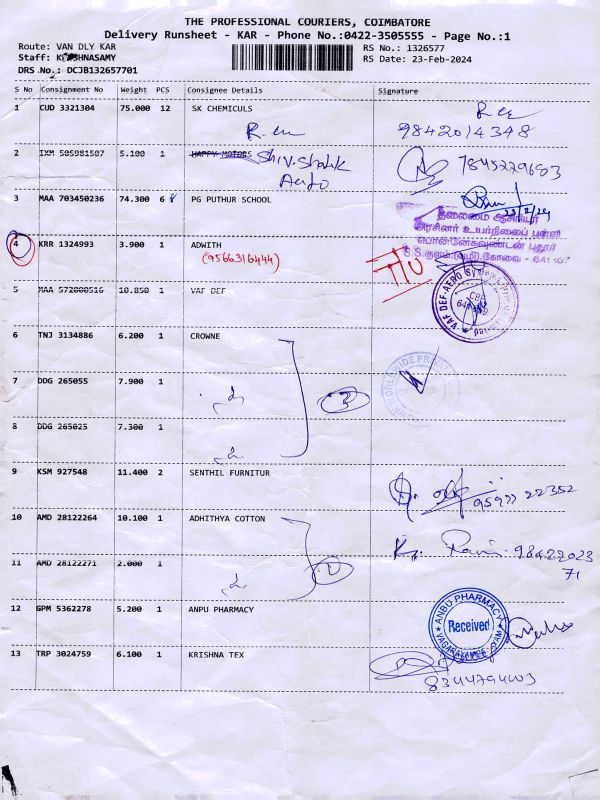 THE PROFESSIONAL COURIERS, COIMBATORE
Delivery Runsheet - KAR - Phone No.:0422-3505555 - Page No.:1
Route: VAN DLY KAR
RS No.: 1326577
Staff: KRISHNASAMY
RS Date: 23-Feb-2024
DRS No.: DCJB132657701
S No Consignment No Weight PCS Consignee Details Signature
1 CUD 3321304 75.000 12 SK CHEMICULS
9842014348
2 IXM 505981507 5.100 1 HAPPY MOTORS Shiv.Shakk
Auto
7845229683
3 MAA 703450236 74.300 6 8 PG PUTHUR SCHOOL
23/2/24
தலைமை ஆசிரியர்
அரசினர் உயர்நிலைப் பள்ளி
4 KRR 1324993 3.900 1 ADWITH
(9566316444)
5 MAA 572000516 10.850 1 VAF DEF
VAF DEF-AERO
6 TNJ 3134886 6.200 1 CROWNE
7 DDG 265055 7.900 1
3
8 DDG 265025 7.300 1
9 KSM 927548 11.400 2 SENTHIL FURNITUR
95977 22352
10 AMD 28122264 10.100 1 ADHITHYA COTTON
K. Ravi 98422023
71
11 AMD 28122271 2.000 1
12 GPM 5362278 5.200 1 ANPU PHARMACY
ANBU PHARMACY
Received
13 TRP 3024759 6.100 1 KRISHNA TEX
8344794403